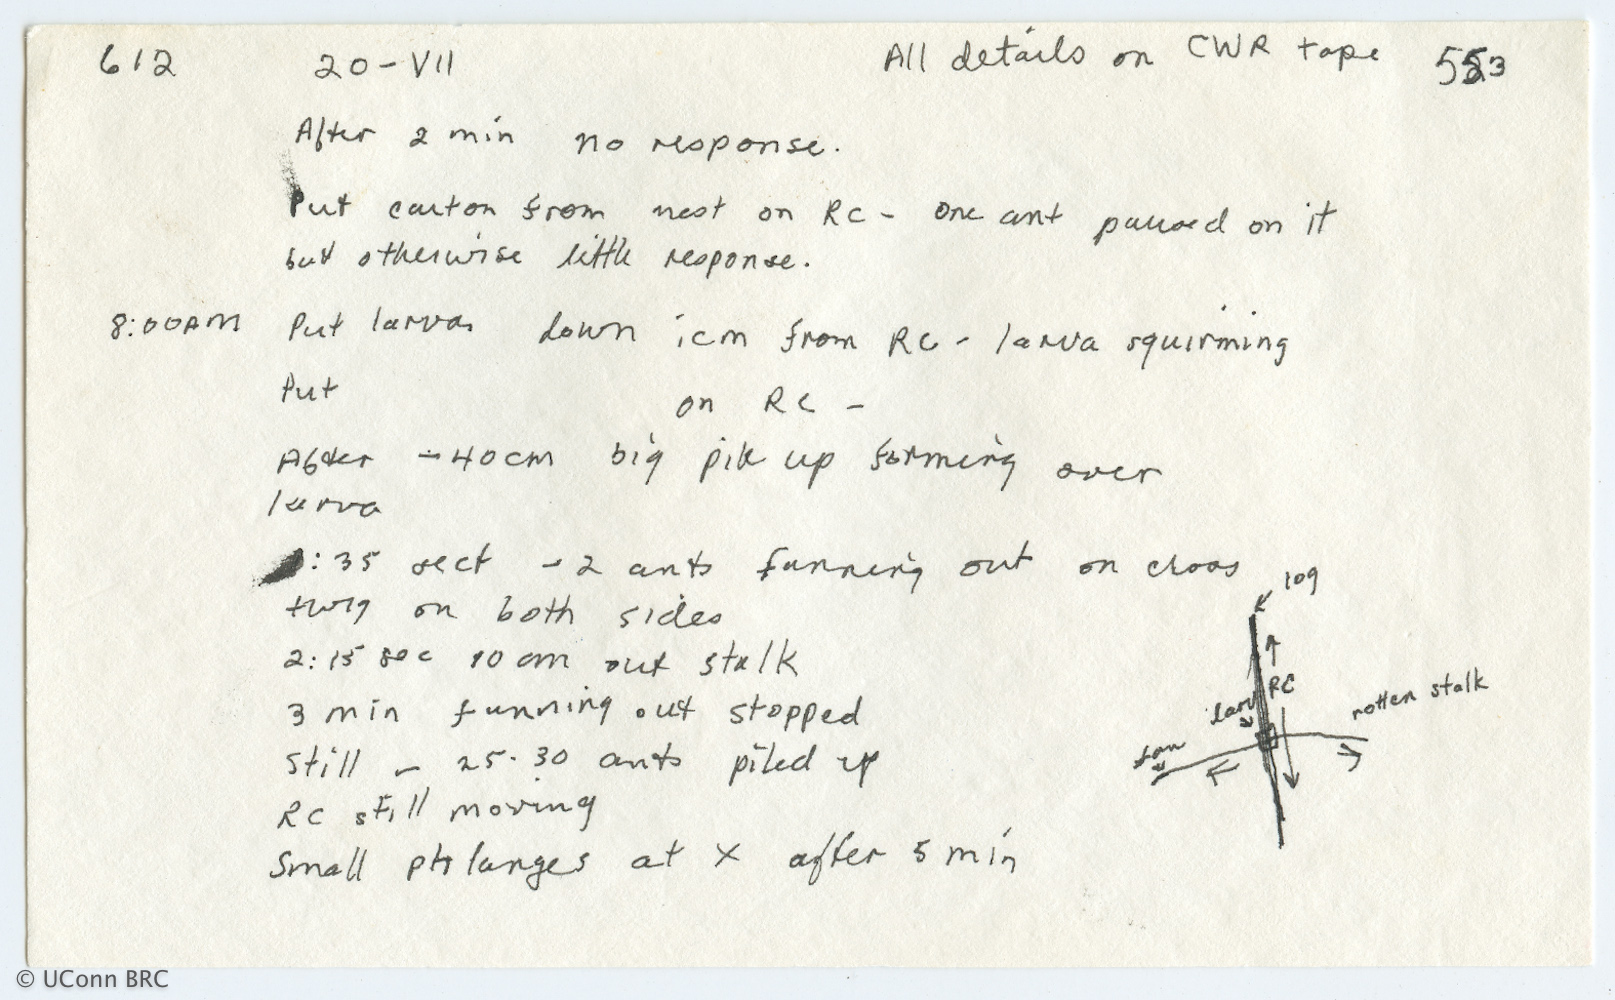 612 20-VII All details on CWR tape 553
After 2 min no response.
Put carton from nest on RC - One ant paused on it
but otherwise little response.
8:00AM Put larva down 1cm from RC - larva squirming
Put on RC -
After 40cm big pile up forming over
larva
:35 sect - 2 ants fanning out on
twig on both sides
2:15 sec 10 cm out stalk
3 min fanning out stopped
Still - 25-30 ants piled up
RC still moving
Small phlanges at X after 5 min
log
RC
larv
rotten stalk
fan
© UConn BRC